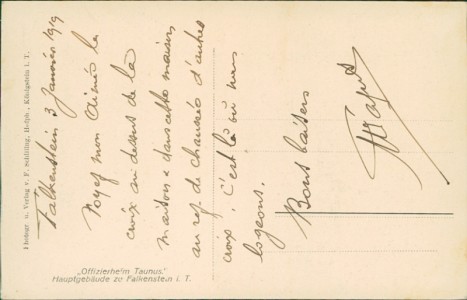 Falkenstein 3 Janvier 1919
Voyez mon Aimée la
croix au dessus de la
maison dans cette maison
au rez de chaussée d'autres
croix. C'est là où nous
logeons.
Bons baisers
„Offizierheim Taunus.“
Hauptgebäude zu Falkenstein i. T.
Photogr. u. Verlag v. F. Schilling, Hofph., Königstein i. T.